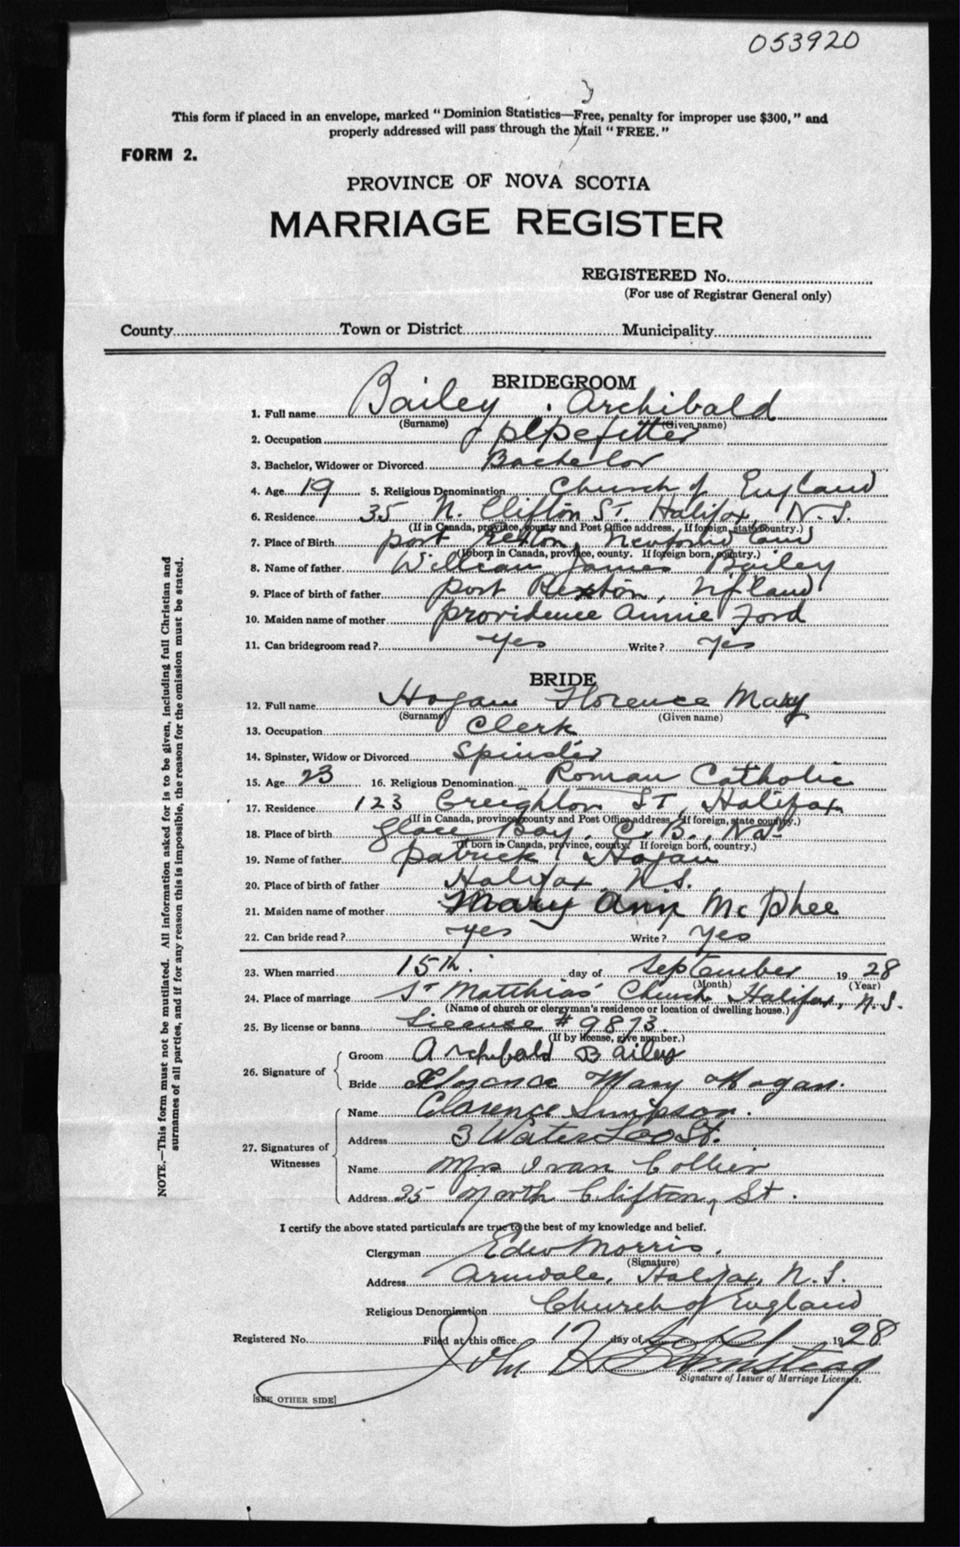 053920
This form if placed in an envelope, marked "Dominion Statistics—Free, penalty for improper use $300," and
properly addressed will pass through the Mail "FREE."
FORM 2.
PROVINCE OF NOVA SCOTIA
MARRIAGE REGISTER
REGISTERED No.
(For use of Registrar General only)
County Town or District Municipality
BRIDEGROOM
1. Full name Bailey . Archibald
(Surname) (Given name)
2. Occupation pipefitter
3. Bachelor, Widower or Divorced Bachelor
4. Age 19 5. Religious Denomination Church of England
6. Residence 35 N. Clifton St. Halifax, N.S.
(If in Canada, province, county and Post Office address. If foreign, state country.)
7. Place of Birth port Rexton, Newfoundland
(If born in Canada, province, county. If foreign born, country.)
8. Name of father William James Bailey
9. Place of birth of father port Rexton, Nfland
10. Maiden name of mother providence Annie Ford
11. Can bridegroom read? Yes Write? Yes
BRIDE
12. Full name Hogan Florence Mary
(Surname) (Given name)
13. Occupation Clerk
14. Spinster, Widow or Divorced Spinster
15. Age 23 16. Religious Denomination Roman Catholic
17. Residence 123 Creighton St, Halifax
(If in Canada, province county and Post Office address. If foreign, state country.)
18. Place of birth Glace Bay, C.B.,
(If born in Canada, province, county. If foreign born, country.)
19. Name of father Patrick Hogan
20. Place of birth of father Halifax, N.S.
21. Maiden name of mother Mary Ann McPhee
22. Can bride read? yes Write? Yes
23. When married 15th. day of September 19 28
(Month) (Year)
24. Place of marriage St Matthias' Church Halifax, N.S.
(Name of church or clergyman's residence or location of dwelling house.)
25. By license or banns License # 9873.
(If by license, give number.)
26. Signature of Groom Archibald Bailey
Bride Florence Mary Hogan.
27. Signatures of Witnesses Name Clarence Simpson.
Address 3 Waterloo St.
Name Mrs Ivan Collier
Address 25 North Clifton, St.
I certify the above stated particulars are true to the best of my knowledge and belief.
Clergyman Edw Morris.
(Signature)
Address Armdale, Halifax, N.S.
Religious Denomination Church of England
Registered No. Filed at this office 17 day of Sept 1928
John H
Signature of Issuer of Marriage Licenses.
[SEE OTHER SIDE]
NOTE.—This form must not be mutilated. All information asked for is to be given, including full Christian and
surnames of all parties, and if for any reason this is impossible, the reason for the omission must be stated.